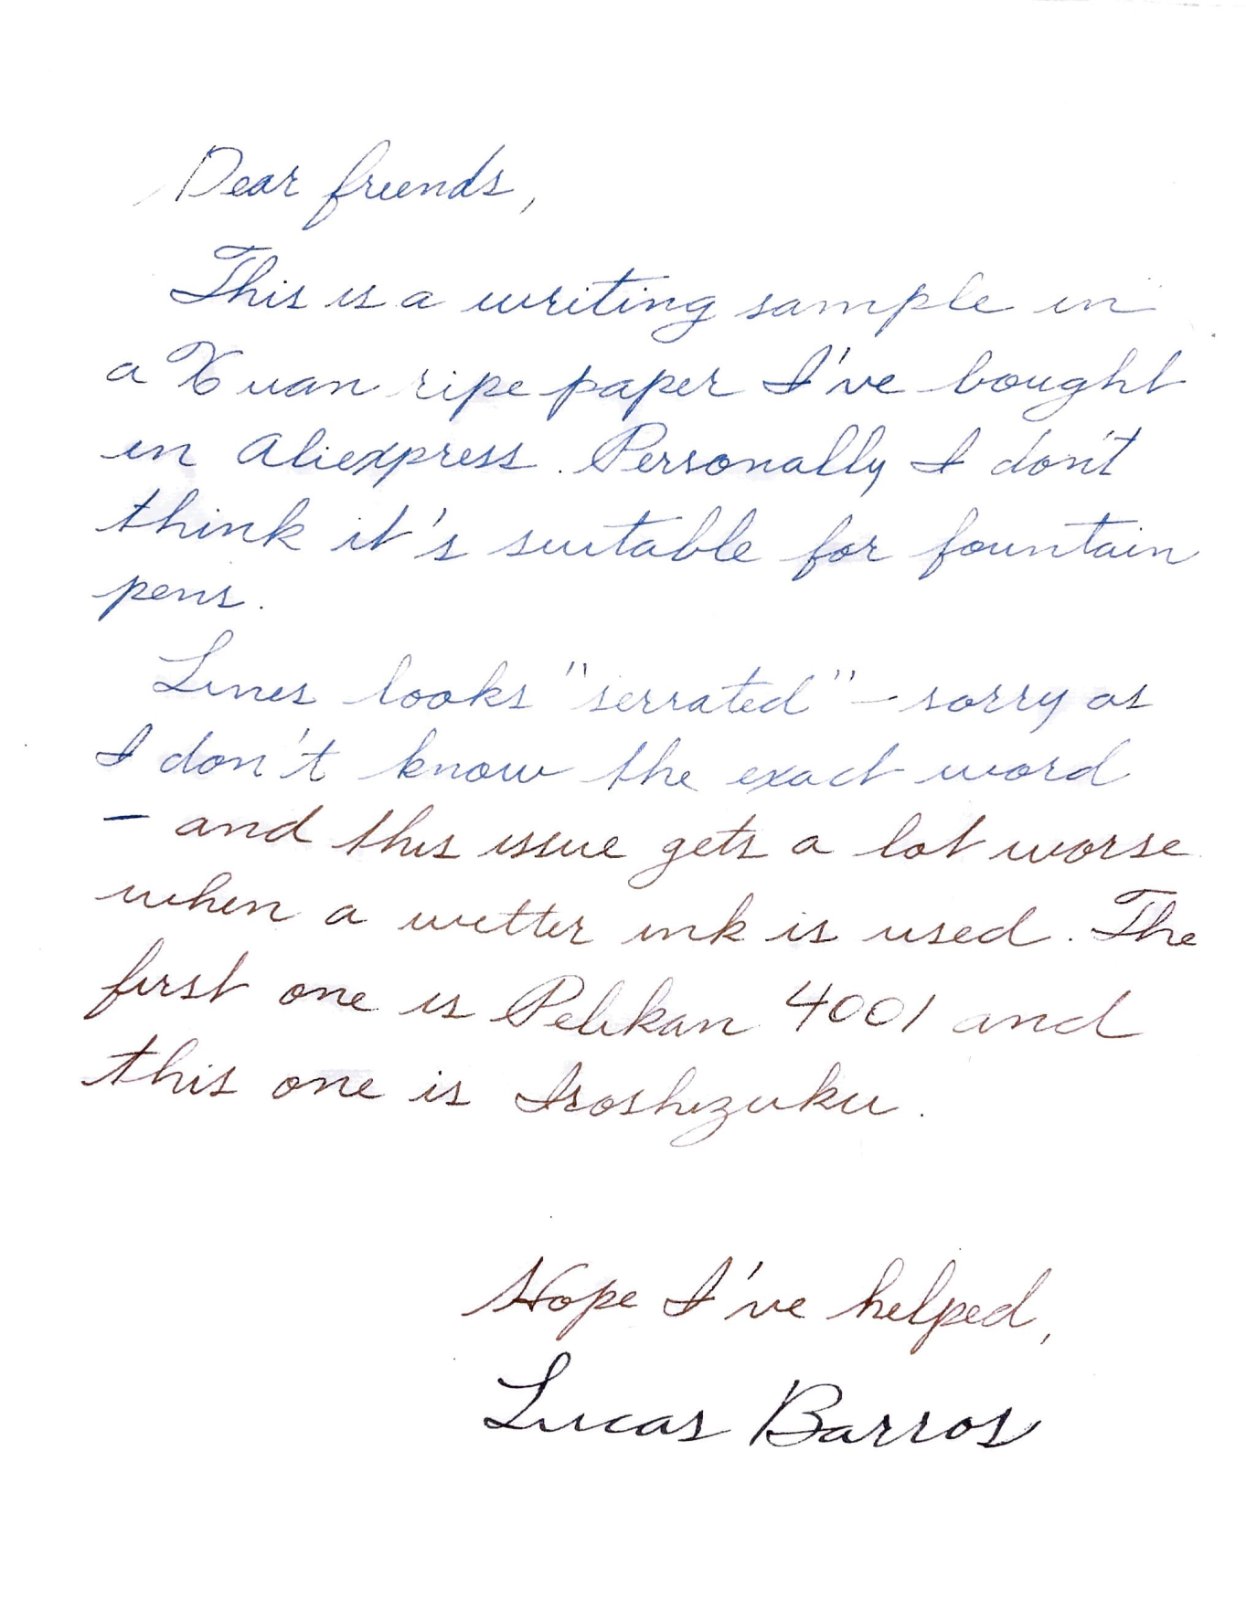 Dear friends,
This is a writing sample in
a Xuan ripe paper I've bought
in Aliexpress. Personally I don't
think it's suitable for fountain
pens.
Lines looks "serrated" - sorry as
I don't know the exact word
- and this issue gets a lot worse
when a wetter ink is used. The
first one is Pelikan 4001 and
this one is Iroshizuku.
Hope I've helped,
Lucas Barros